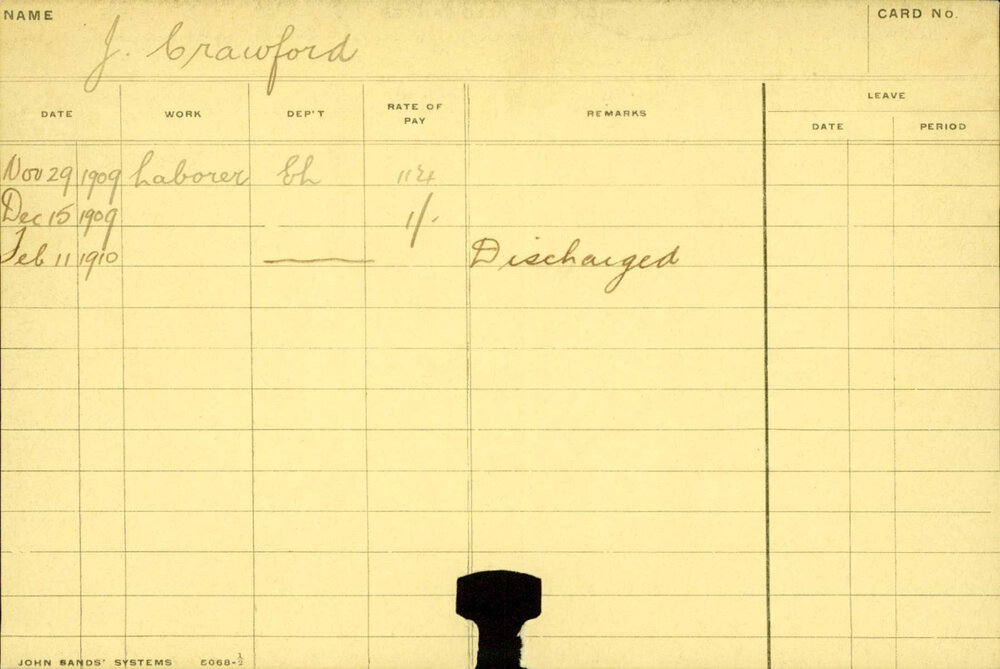 NAME
J. Crawford
CARD No.
DATE WORK DEP'T RATE OF PAY REMARKS LEAVE
DATE PERIOD
Nov 29 1909 Laborer Eh
Dec 15 1909 1/-
Feb 11 1910 Discharged
JOHN SANDS' SYSTEMS 5068-½